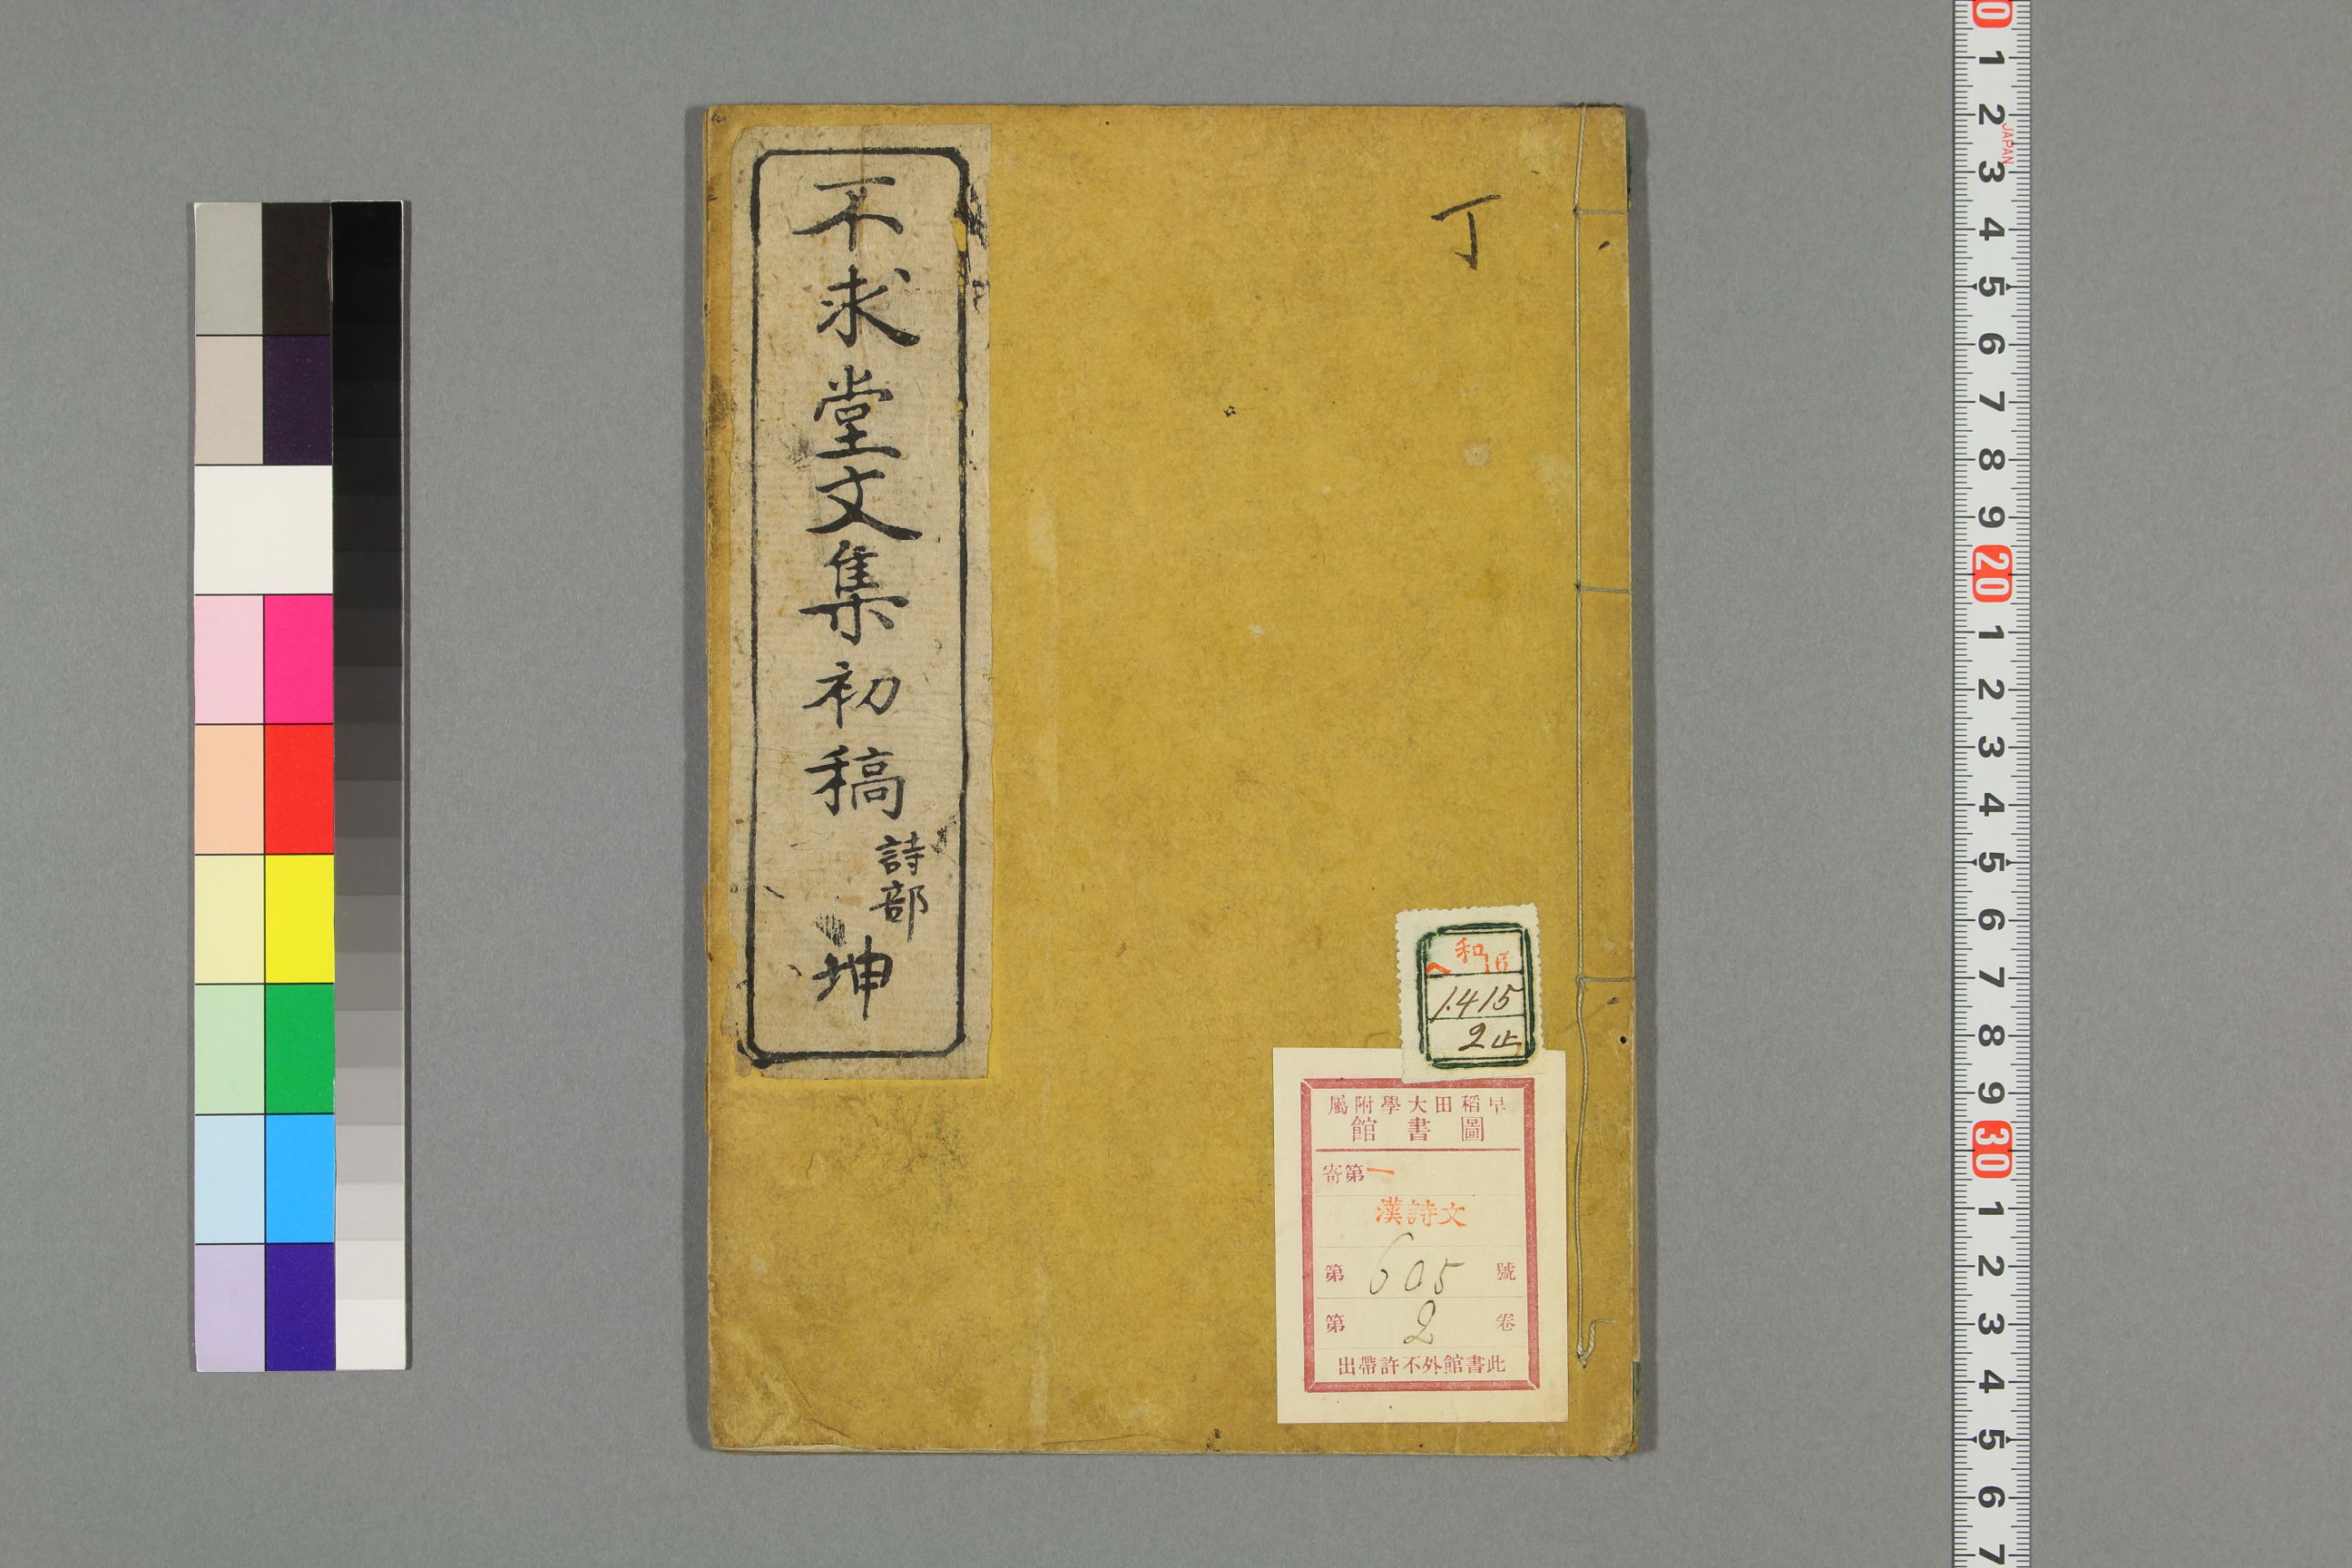 不求堂文集初稿
詩部
坤
丁
和16
ヘ
1.415
2止
早稻田大學附屬
圖書館
寄第一
漢詩文
第605號
第2卷
此書館外不許帶出
0 1 2 3 4 5 6 7 8 9 20 1 2 3 4 5 6 7 8 9 30 1 2 3 4 5 6 7
JAPAN